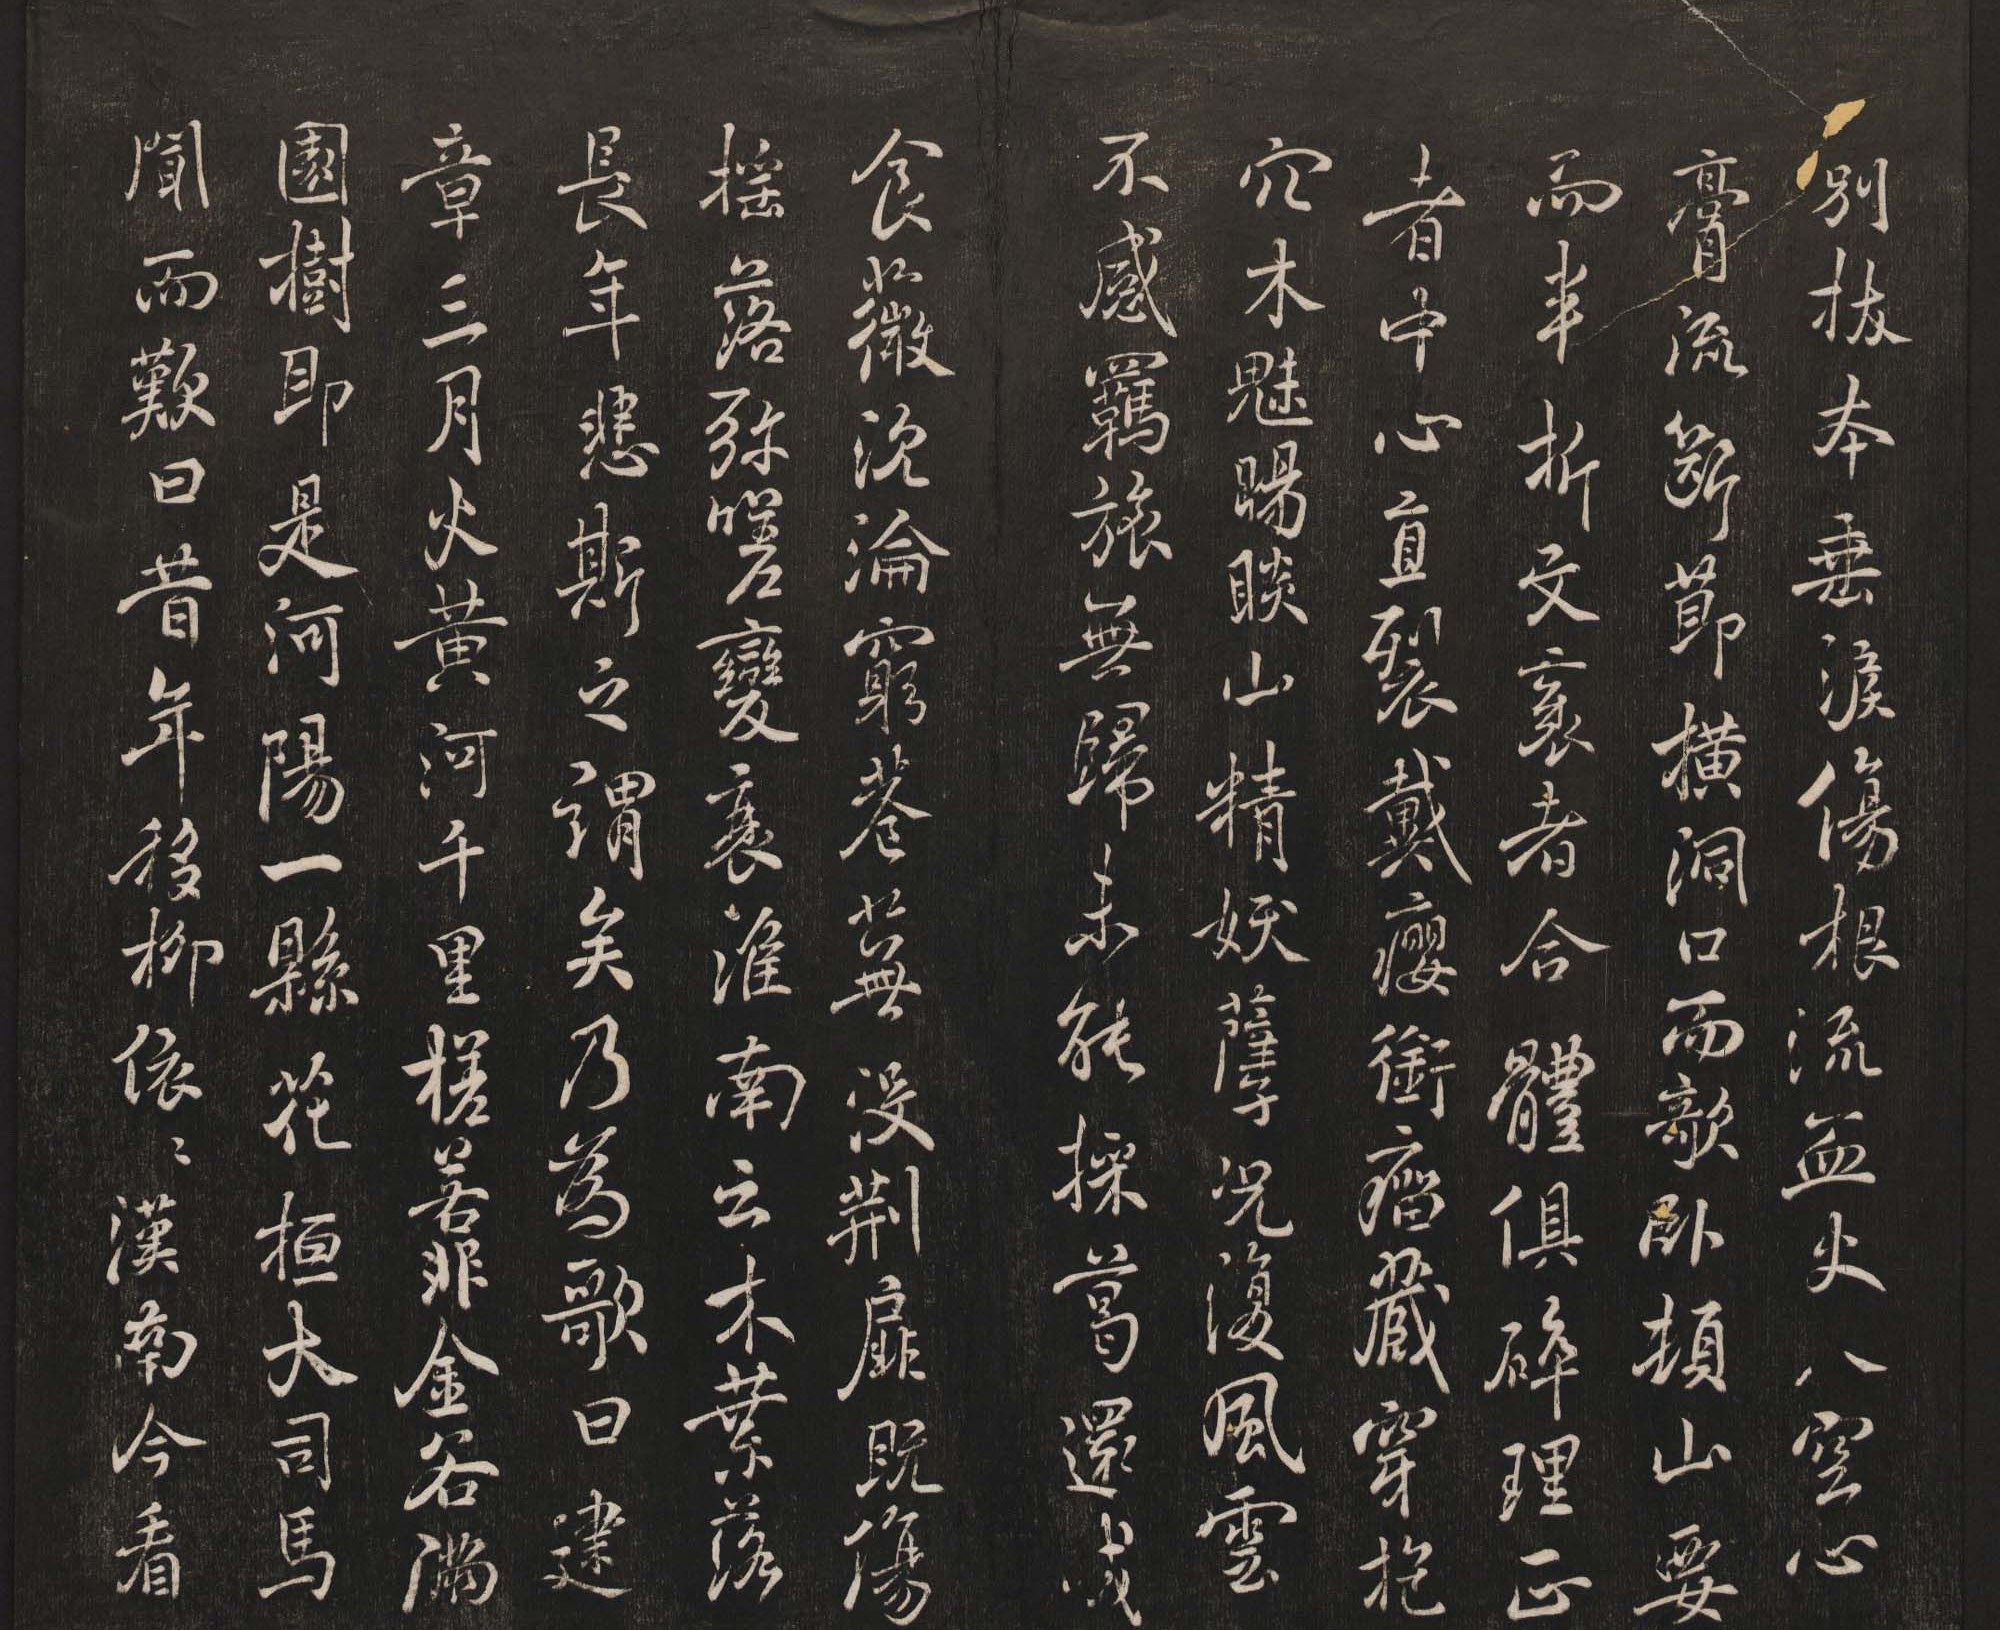 別拔本垂淚傷根流血火入空心
膏流斷節橫洞口而敧卧頓山要
而半折文衺者合體俱碎理正
者中心直裂戴癭銜瘤藏穿抱
穴木魅睗睒山精妖孽況復風雲
不感羈旅無歸未能採葛還成
食薇沉淪窮巷蕪沒荆扉既傷
搖落弥嗟變衰淮南云木葉落
長年悲斯之謂矣乃為歌曰建
章三月火黃河千里槎若非金谷滿
園樹即是河陽一縣花桓大司馬
聞而歎曰昔年移柳依〻漢南今看